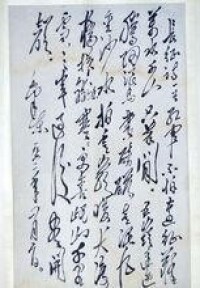 長征詩一首紅軍不怕遠征難
萬水千山只等閒五嶺逶迤
騰細浪烏蒙磅礴走泥丸
金沙水拍雲崖暖大渡
橋橫鐵索寒更喜岷山千里
雪三軍過後盡開
顏 毛澤東